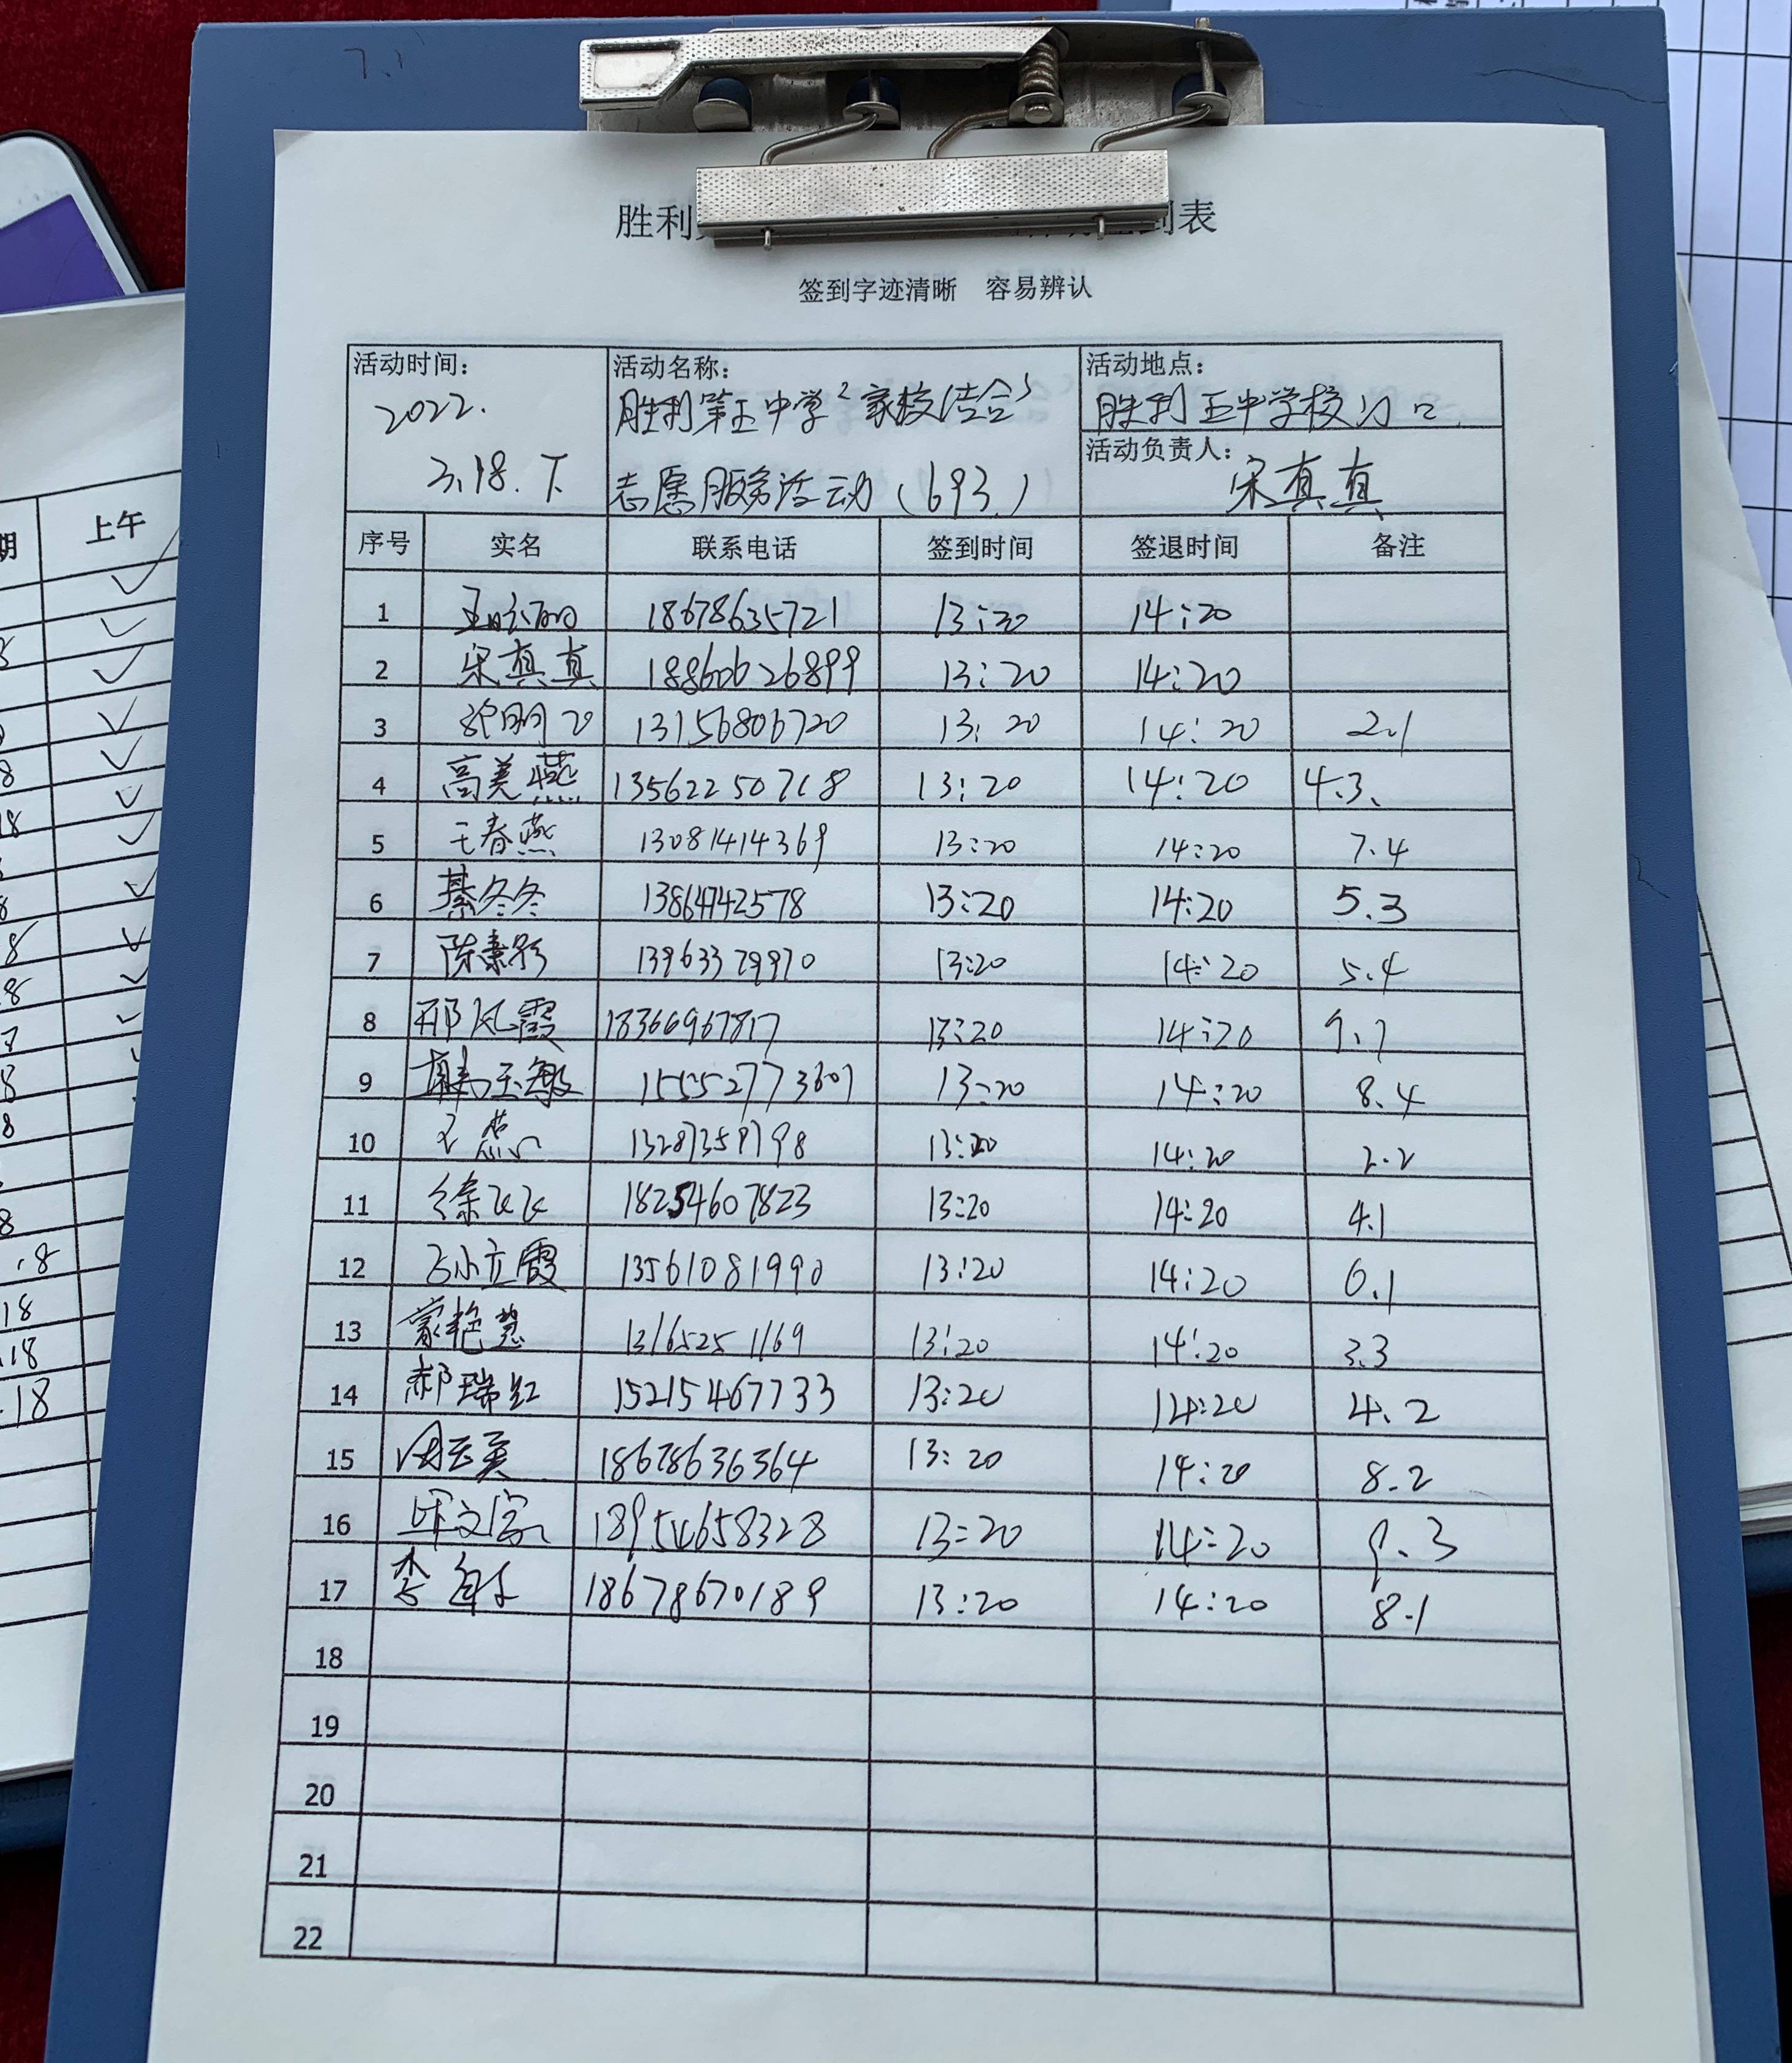 胜利 到表
签到字迹清晰 容易辨认
活动时间: 活动名称: 活动地点:
2022. 胜利第五中学"家校结合" 胜利五中学校门口
3.18.下 志愿服务活动(693.) 活动负责人: 宋真真
序号 实名 联系电话 签到时间 签退时间 备注
1 18678635721 13:20 14:20
2 宋真真 18860626899 13:20 14:20
3 13156806720 13:20 14:20 2.1
4 高美燕 13562250718 13:20 14:20 4.3.
5 王春燕 13081414369 13:20 14:20 7.4
6 綦冬冬 13864742578 13:20 14:20 5.3
7 陈素彩 13963379970 13:20 14:20 5.4
8 邢凤霞 18366967817 13:20 14:20 9.1
9 韩玉敏 15552773601 13:20 14:20 8.4
10 王燕 13287359798 13:20 14:20 2.2
11 徐飞飞 18254607823 13:20 14:20 4.1
12 13561081990 13:20 14:20 6.1
13 蒙艳慧 13165251169 13:20 14:20 3.3
14 郝瑞红 15215467733 13:20 14:20 4.2
15 18678636364 13:20 14:20 8.2
16 18954658328 13:20 14:20 9.3
17 李 18678670189 13:20 14:20 8.1
18
19
20
21
22
期 上午